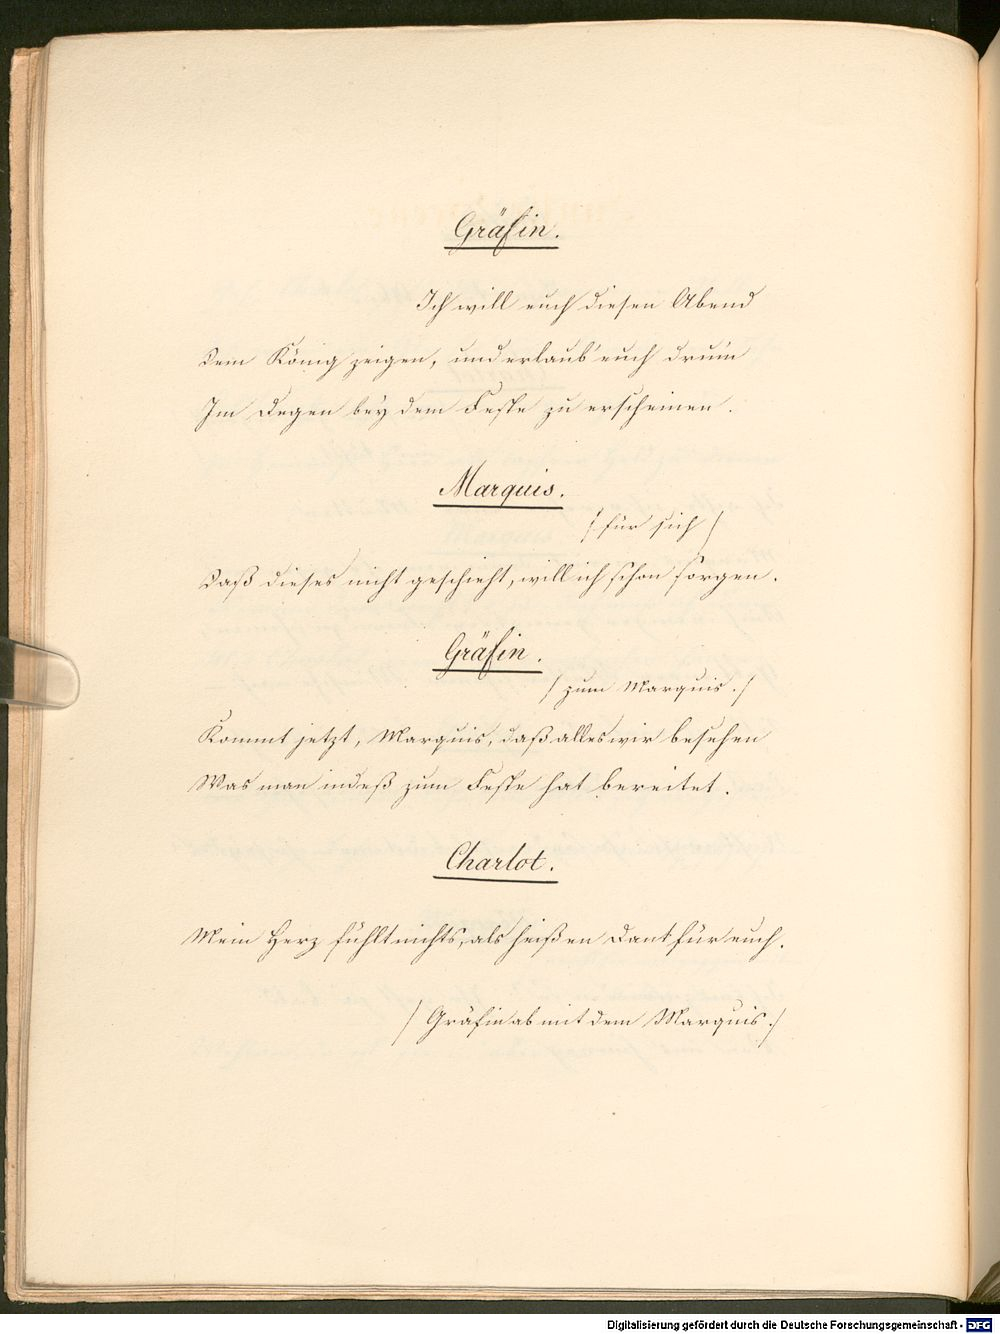 Gräfin.
Ich will euch diesen Abend
Dem König zeigen, und erlaub' euch drum
Im Degen bey dem Feste zu erscheinen.
Marquis.
/ für sich /
Daß dieses nicht geschieht, will ich schon sorgen.
Gräfin.
/ zum Marquis. /
Kommt jetzt, Marquis, daß alles wir besehen
Was man indeß zum Feste hat bereitet.
Charlot.
Mein Herz fühlt nichts, als heißen Dank für euch.
/ Gräfin ab mit dem Marquis. /
Digitalisierung gefördert durch die Deutsche Forschungsgemeinschaft - DFG